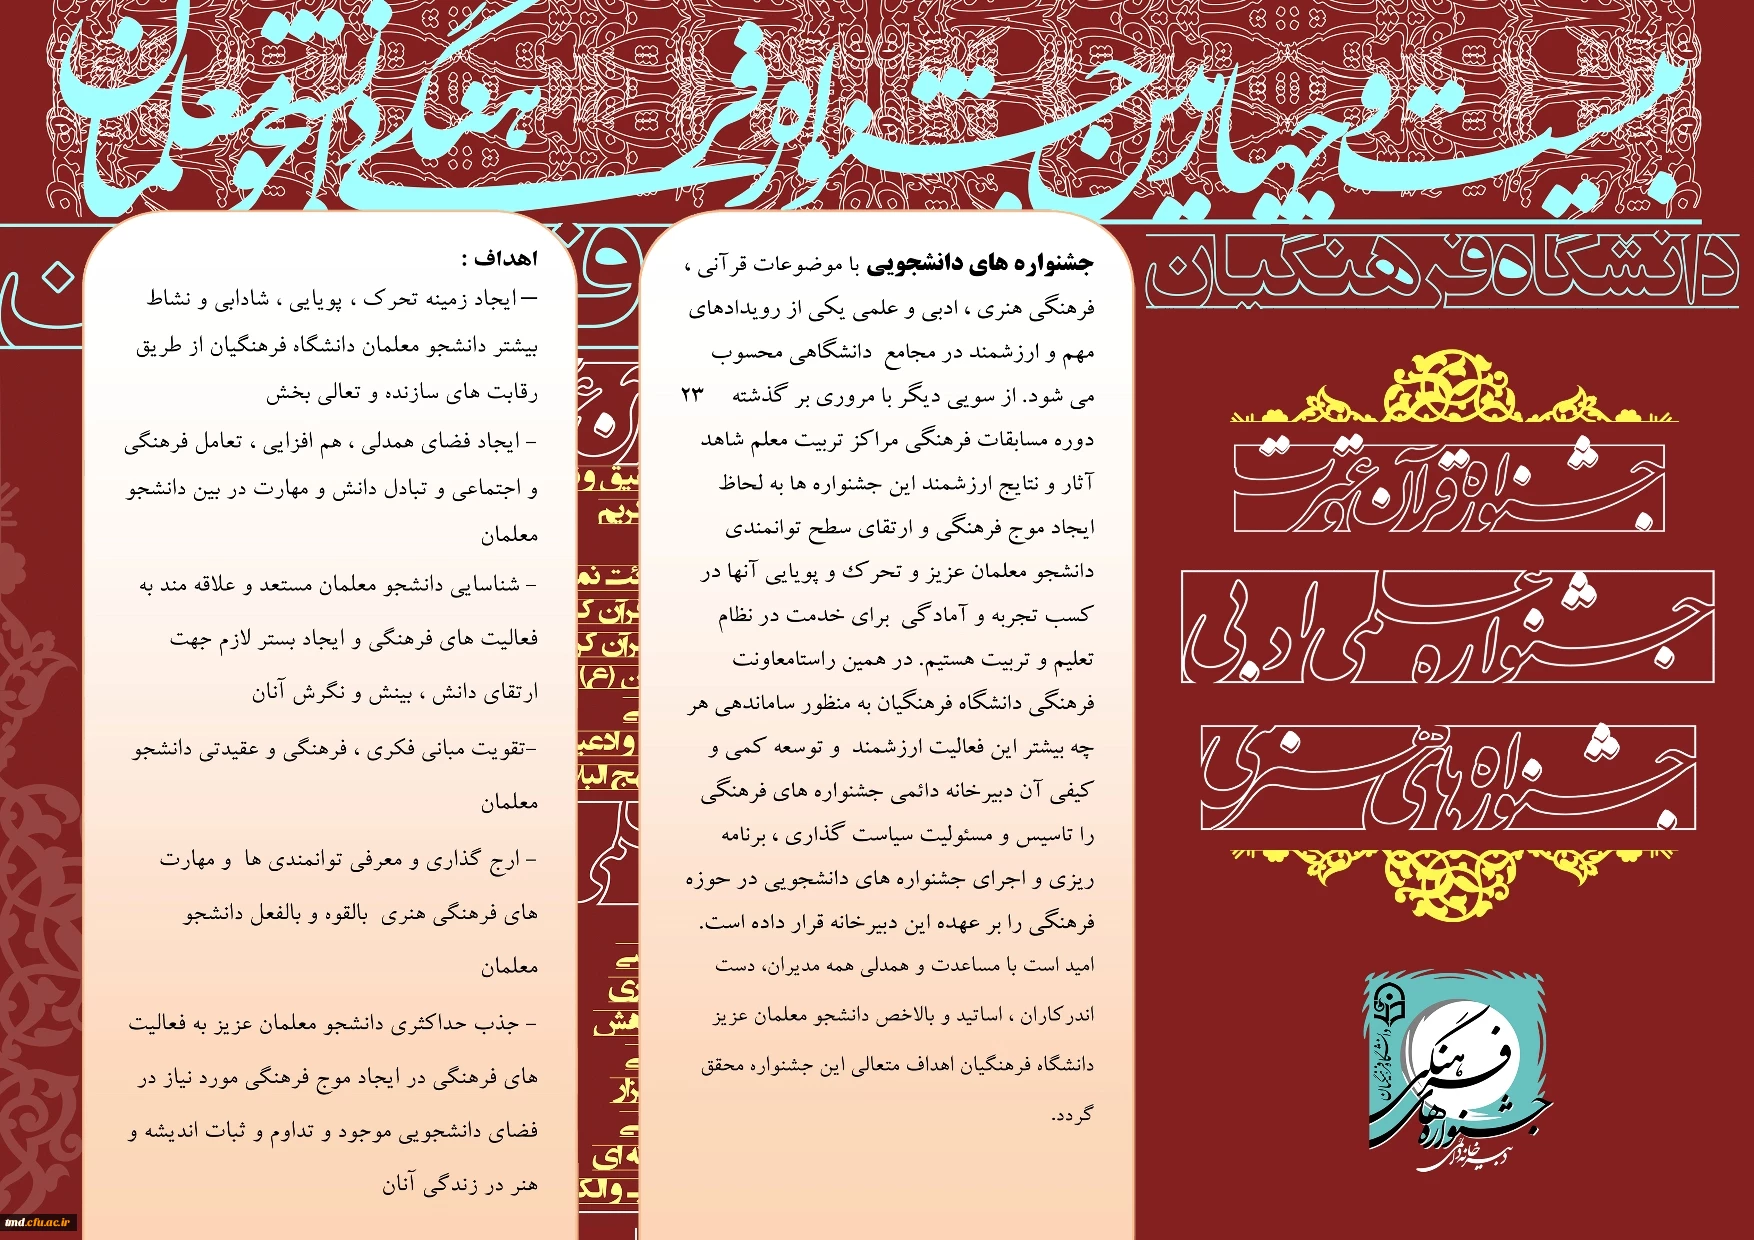 بیست و چهارمین جشنواره فرهنگی دانشجو معلمان
دانشگاه فرهنگیان
جشنواره قرآن و عترت
جشنواره علمی ادبی
جشنواره های هنری
دانشگاه فرهنگیان
جشنواره های فرهنگی
دبیرخانه دائمی
جشنواره های دانشجویی با موضوعات قرآنی ،
فرهنگی هنری ، ادبی و علمی یکی از رویدادهای
مهم و ارزشمند در مجامع دانشگاهی محسوب
می شود. از سویی دیگر با مروری بر گذشته ۲۳
دوره مسابقات فرهنگی مراکز تربیت معلم شاهد
آثار و نتایج ارزشمند این جشنواره ها به لحاظ
ایجاد موج فرهنگی و ارتقای سطح توانمندی
دانشجو معلمان عزیز و تحرک و پویایی آنها در
کسب تجربه و آمادگی برای خدمت در نظام
تعلیم و تربیت هستیم. در همین راستامعاونت
فرهنگی دانشگاه فرهنگیان به منظور ساماندهی هر
چه بیشتر این فعالیت ارزشمند و توسعه کمی و
کیفی آن دبیرخانه دائمی جشنواره های فرهنگی
را تاسیس و مسئولیت سیاست گذاری ، برنامه
ریزی و اجرای جشنواره های دانشجویی در حوزه
فرهنگی را بر عهده این دبیرخانه قرار داده است.
امید است با مساعدت و همدلی همه مدیران، دست
اندرکاران ، اساتید و بالاخص دانشجو معلمان عزیز
دانشگاه فرهنگیان اهداف متعالی این جشنواره محقق
گردد.
اهداف :
– ایجاد زمینه تحرک ، پویایی ، شادابی و نشاط
بیشتر دانشجو معلمان دانشگاه فرهنگیان از طریق
رقابت های سازنده و تعالی بخش
- ایجاد فضای همدلی ، هم افزایی ، تعامل فرهنگی
و اجتماعی و تبادل دانش و مهارت در بین دانشجو
معلمان
- شناسایی دانشجو معلمان مستعد و علاقه مند به
فعالیت های فرهنگی و ایجاد بستر لازم جهت
ارتقای دانش ، بینش و نگرش آنان
-تقویت مبانی فکری ، فرهنگی و عقیدتی دانشجو
معلمان
- ارج گذاری و معرفی توانمندی ها و مهارت
های فرهنگی هنری بالقوه و بالفعل دانشجو
معلمان
- جذب حداکثری دانشجو معلمان عزیز به فعالیت
های فرهنگی در ایجاد موج فرهنگی مورد نیاز در
فضای دانشجویی موجود و تداوم و ثبات اندیشه و
هنر در زندگی آنان
tmd.cfu.ac.ir